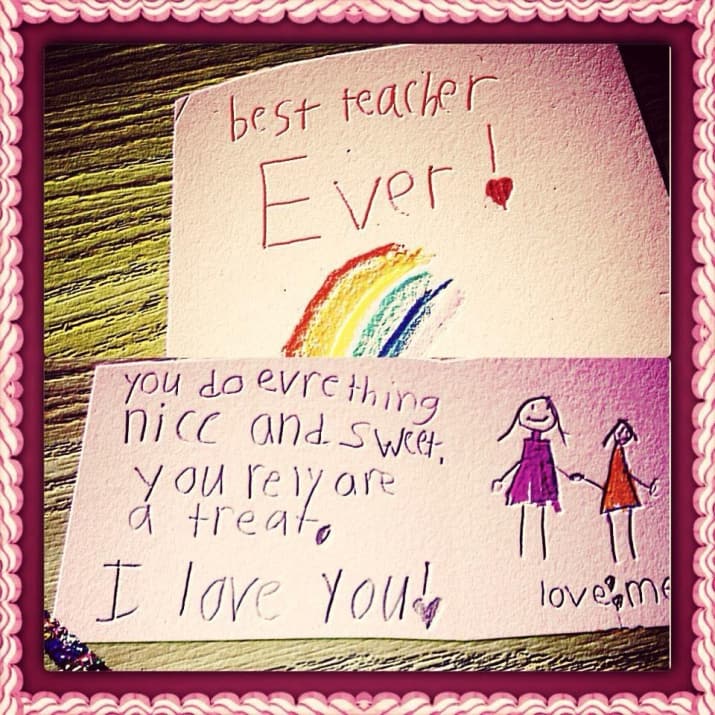 best teacher
Ever!
you do evrething
nice and sweet.
you rely are
a treat.
I love you!
love me